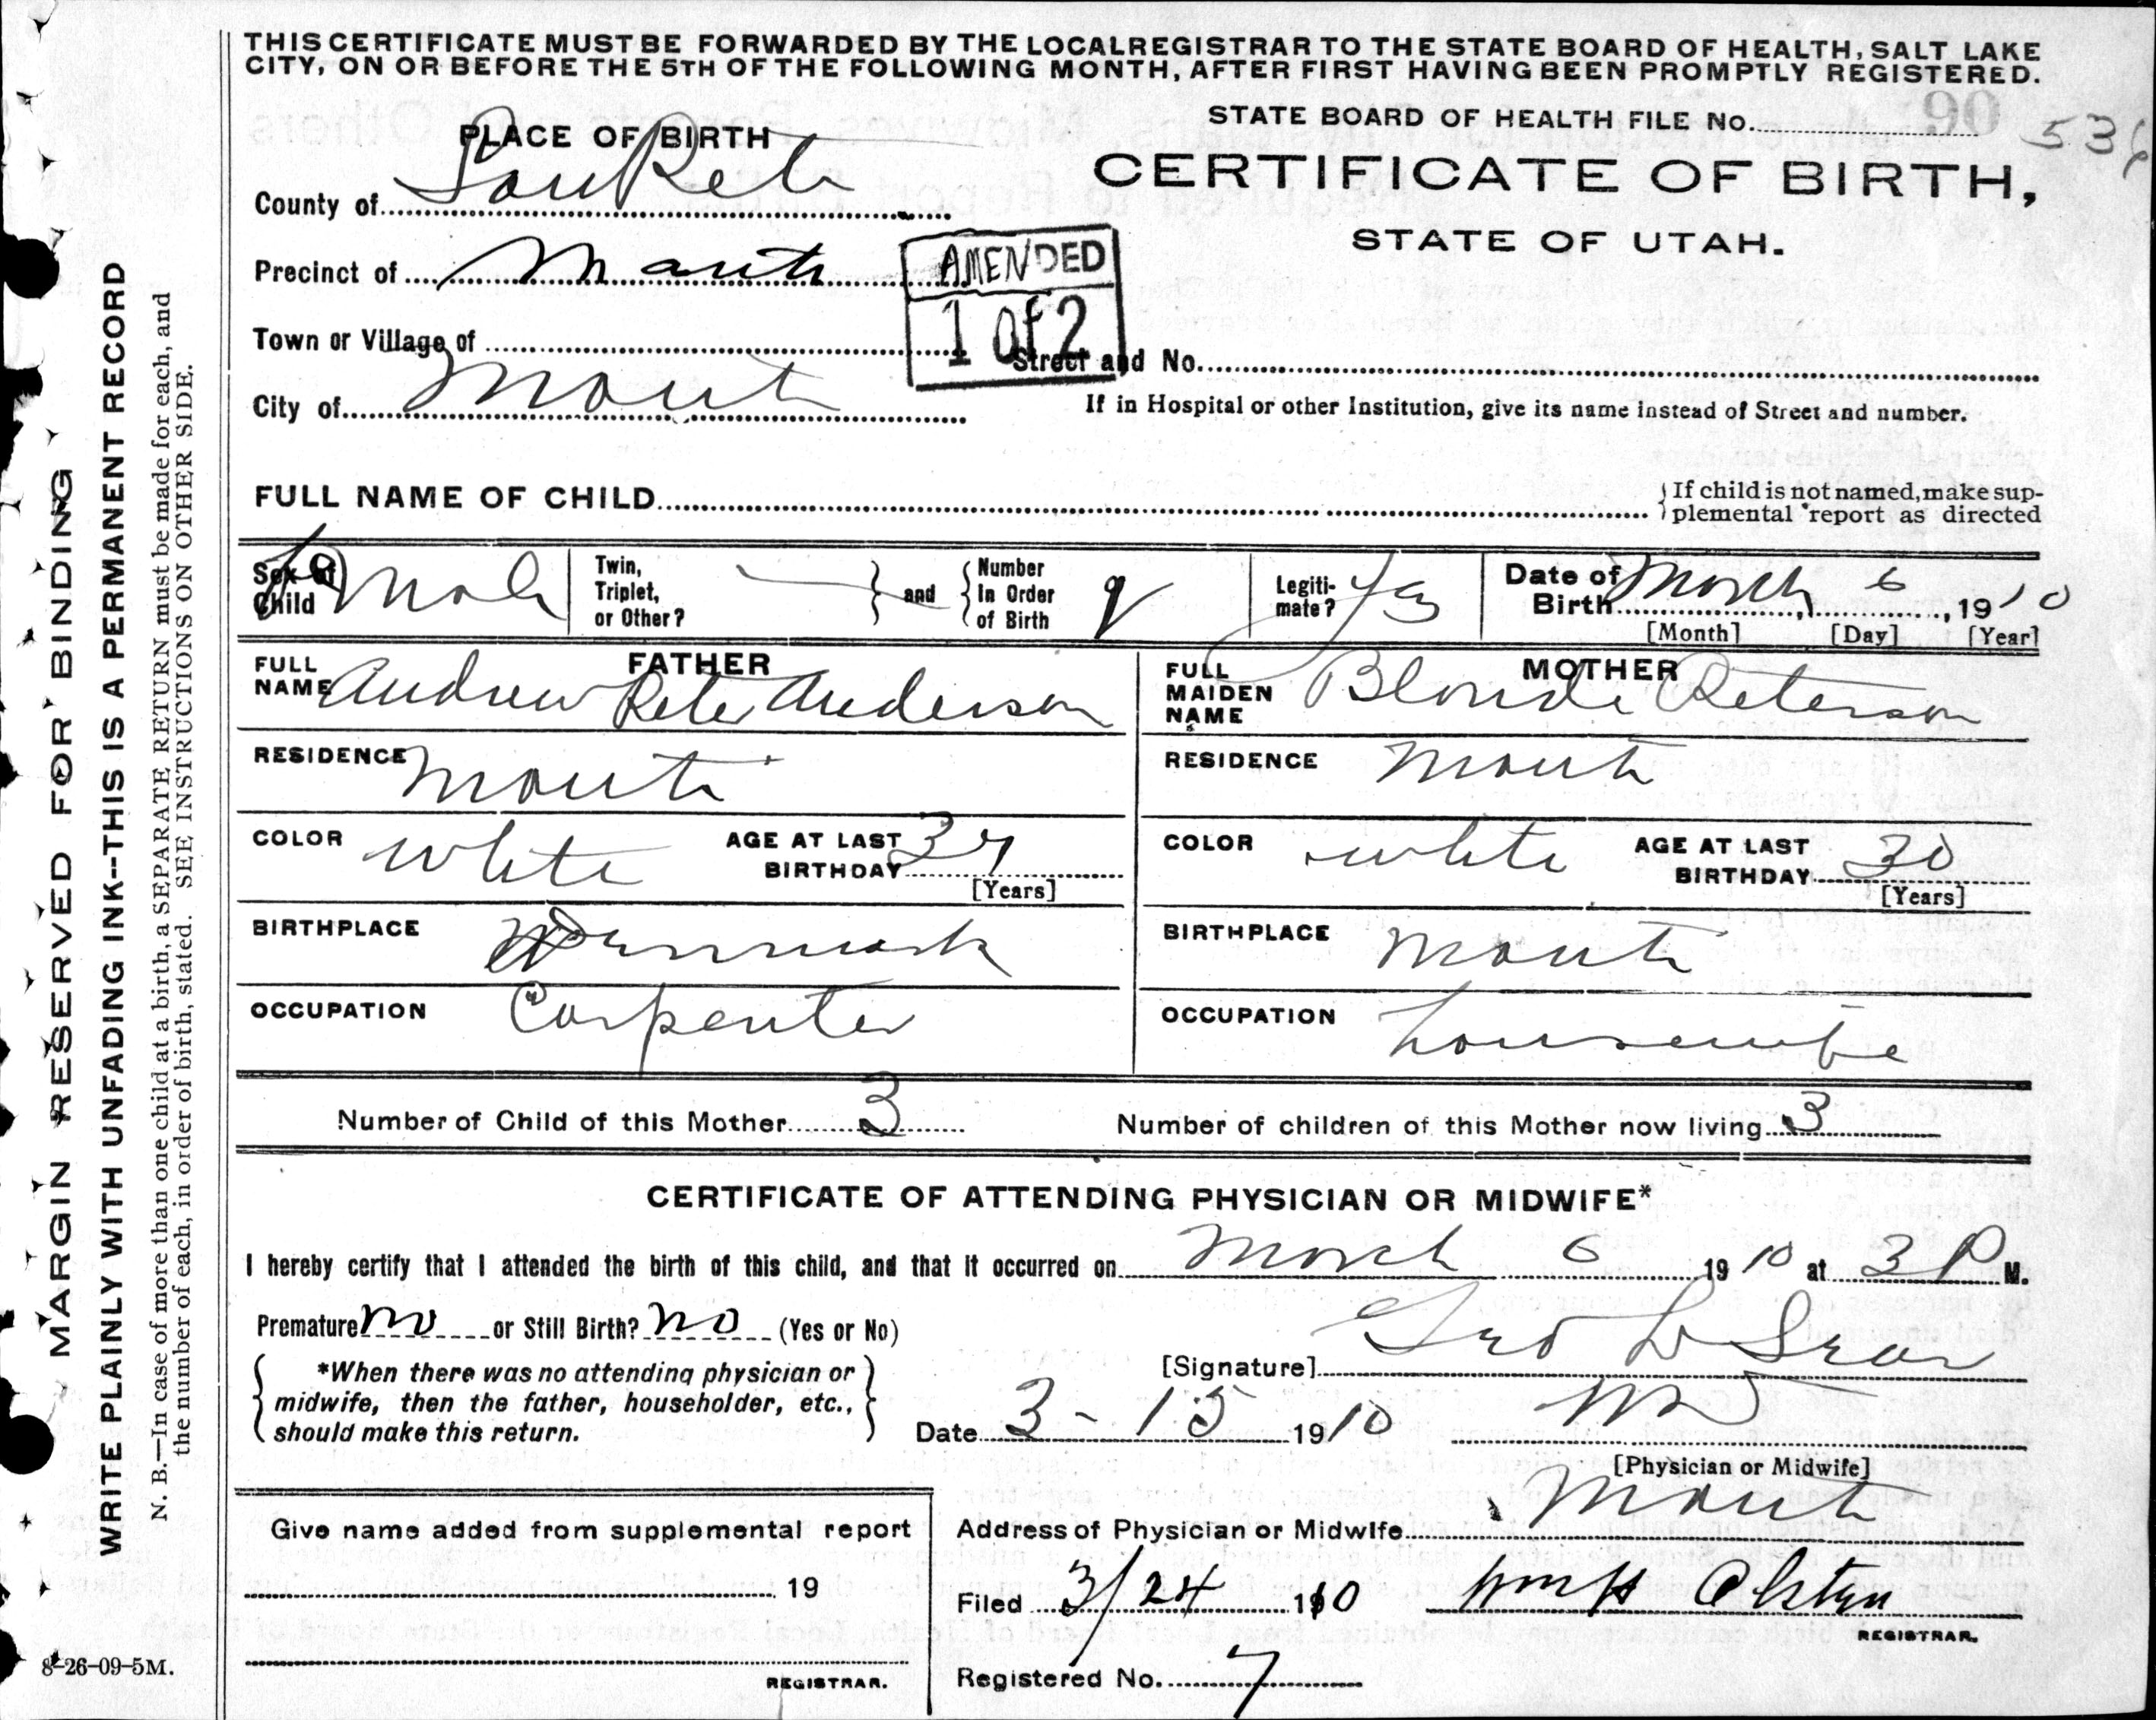 THIS CERTIFICATE MUST BE FORWARDED BY THE LOCAL REGISTRAR TO THE STATE BOARD OF HEALTH, SALT LAKE
CITY, ON OR BEFORE THE 5TH OF THE FOLLOWING MONTH, AFTER FIRST HAVING BEEN PROMPTLY REGISTERED.
STATE BOARD OF HEALTH FILE No. 90
536
PLACE OF BIRTH
CERTIFICATE OF BIRTH,
STATE OF UTAH.
County of SanPete
Precinct of Manti
AMENDED
1 of 2
Town or Village of
Street and No.
City of Manti
If in Hospital or other Institution, give its name instead of Street and number.
FULL NAME OF CHILD
If child is not named, make sup-
plemental report as directed
Sex of Child
Twin, Triplet, or Other?
and
Number In Order of Birth
Legiti- mate? Yes
Date of Birth March 6, 1910
[Month] [Day] [Year]
FATHER
FULL NAME Andrew Peter Anderson
RESIDENCE Manti
COLOR White AGE AT LAST BIRTHDAY
[Years]
BIRTHPLACE Denmark
OCCUPATION Carpenter
MOTHER
FULL MAIDEN NAME Blonde Peterson
RESIDENCE Manti
COLOR white AGE AT LAST BIRTHDAY 30
[Years]
BIRTHPLACE Manti
OCCUPATION housewife
Number of Child of this Mother 3 Number of children of this Mother now living 3
CERTIFICATE OF ATTENDING PHYSICIAN OR MIDWIFE*
I hereby certify that I attended the birth of this child, and that it occurred on March 6 1910 at 3 P M.
Premature no or Still Birth? no (Yes or No)
*When there was no attending physician or
midwife, then the father, householder, etc.,
should make this return.
[Signature] Geo L Sears
Date 3-15 1910 MD
[Physician or Midwife]
Give name added from supplemental report
19
REGISTRAR.
Address of Physician or Midwife Manti
Filed 3/24 1910 Wm H
REGISTRAR.
Registered No. 7
MARGIN RESERVED FOR BINDING
WRITE PLAINLY WITH UNFADING INK--THIS IS A PERMANENT RECORD
N. B.—In case of more than one child at a birth, a SEPARATE RETURN must be made for each, and
the number of each, in order of birth, stated. SEE INSTRUCTIONS ON OTHER SIDE.
8-26-09-5M.